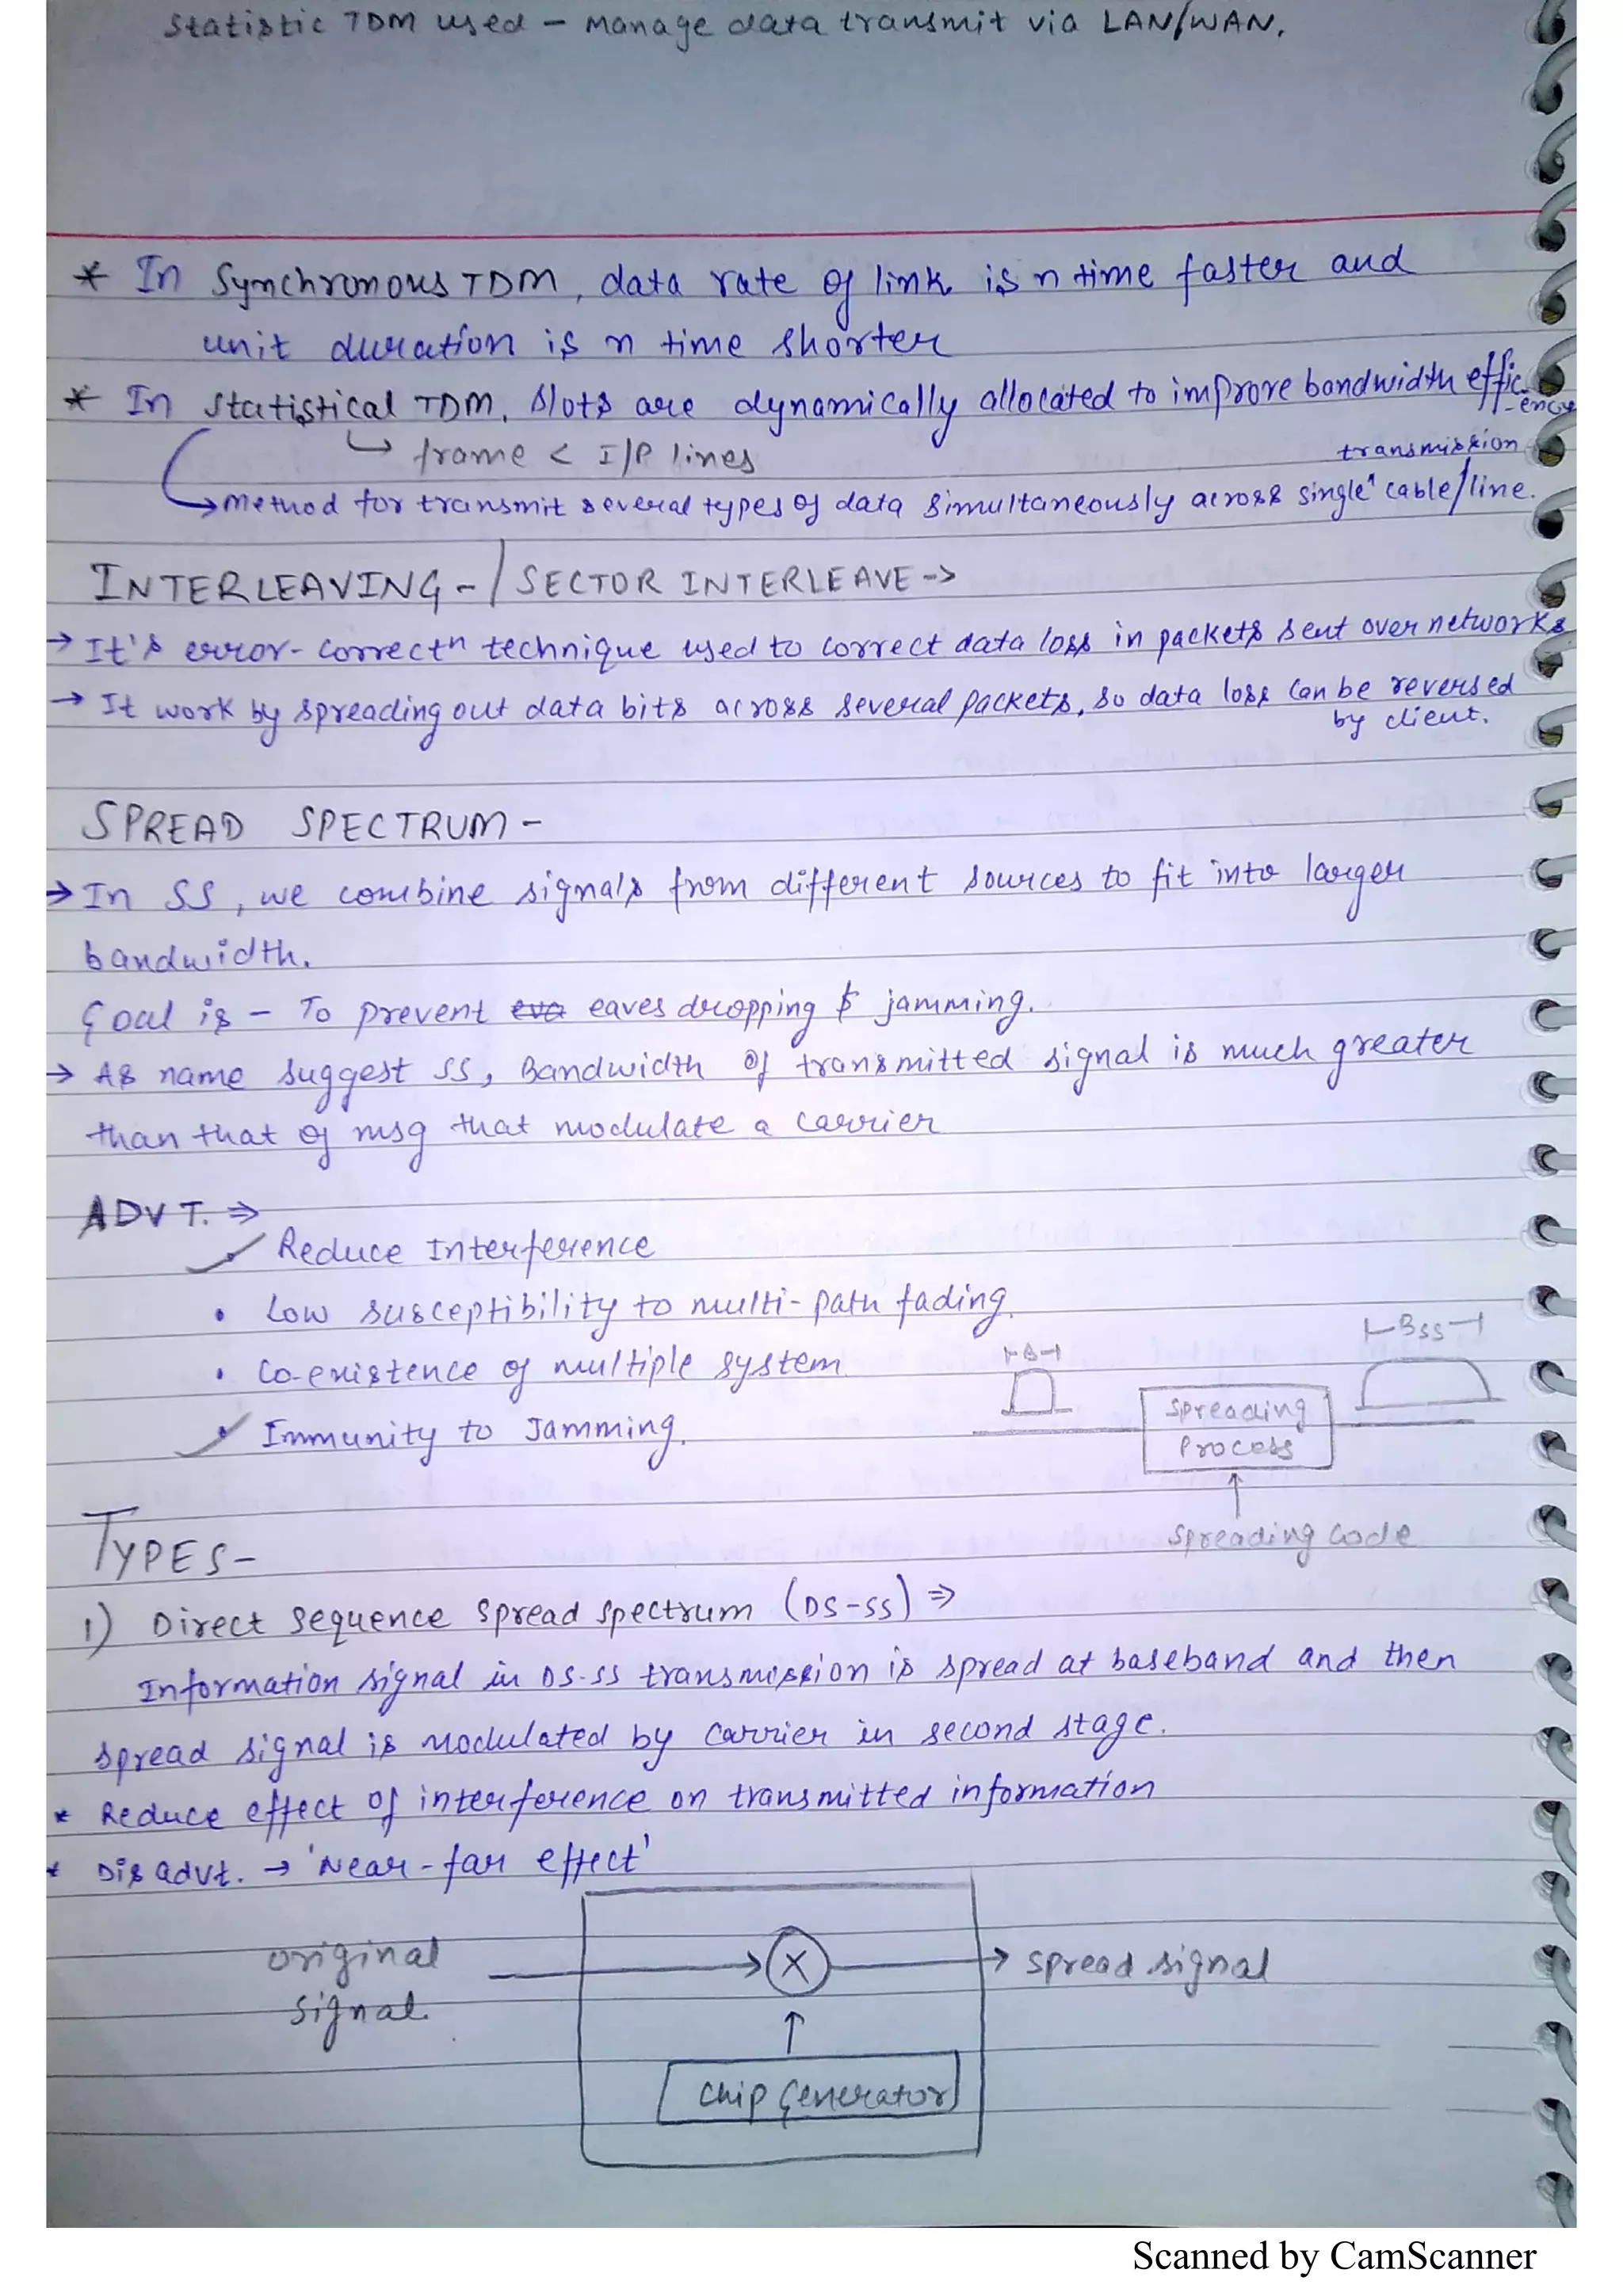 Statistic TDM used - Manage data transmit via LAN/WAN.
* In Synchronous TDM, data rate of link is n time faster and
unit duration is n time shorter
* In Statistical TDM, slots are dynamically allocated to improve bandwidth effic-ency
↳ frame < I/P lines
transmission
↳ method for transmit several types of data simultaneously across single^ cable/line.
INTERLEAVING - / SECTOR INTERLEAVE ->
→ It's error-correctn technique used to correct data loss in packets sent over networks
→ It work by spreading out data bits across several packets, so data loss can be reversed
by client.
SPREAD SPECTRUM -
→ In SS, we combine signals from different sources to fit into larger
bandwidth.
Goal is - To prevent eva eaves dropping & jamming.
→ As name suggest SS, Bandwidth of transmitted signal is much greater
than that of msg that modulate a carrier
ADVT. ⇒
• Reduce Interference
• Low susceptibility to multi-path fading.
• Co-existence of multiple system
• Immunity to Jamming.
B
Bss
Spreading
Process
Spreading code
TYPES -
1) Direct Sequence Spread Spectrum (DS-SS) ⇒
Information signal in DS-SS transmission is spread at baseband and then
spread signal is modulated by carrier in second stage.
* Reduce effect of interference on transmitted information
* Disadvt. → 'Near-far effect'
original
signal
X
→ spread signal
Chip Generator
Scanned by CamScanner